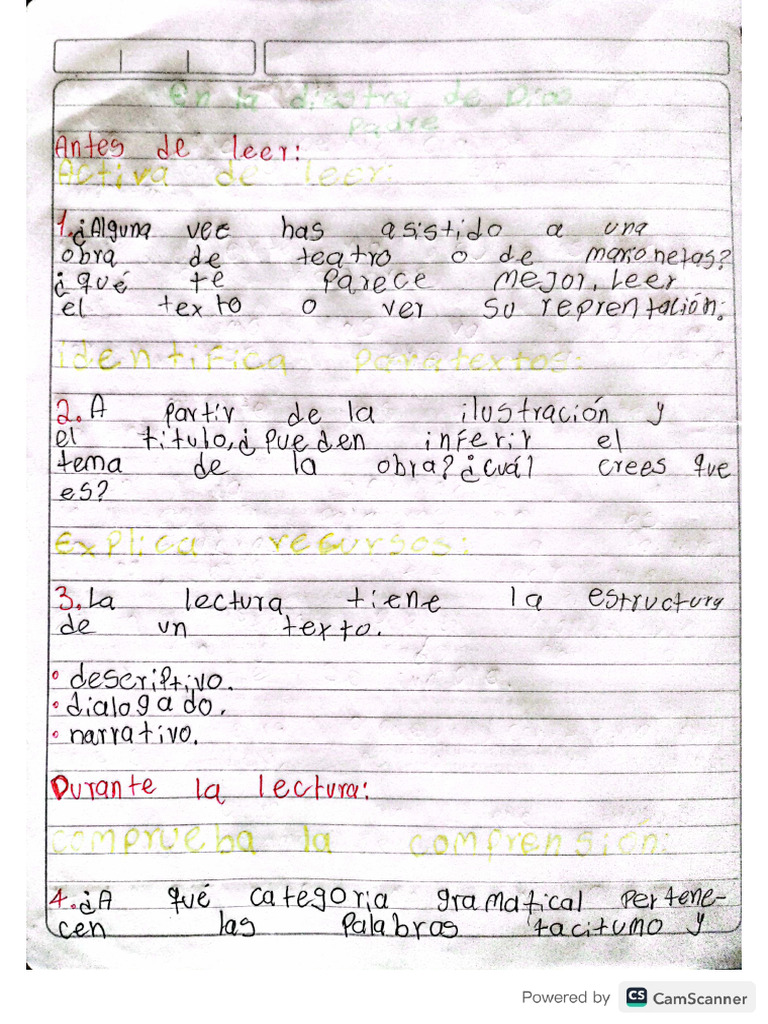 En la diestra de Dios
padre
Antes de leer:
Activa de leer:
1.¿Alguna vec has asistido a una
obra de teatro o de marionetas?
¿qué te parece mejor, Leer
el texto o ver su reprentación:
identifica paratextos:
2.A partir de la ilustración y
el título,¿pueden inferir el
tema de la obra?¿cuál crees que
es?
Explica recursos:
3.La lectura tiene la estructura
de un texto.
• descriptivo.
• dialogado.
• narrativo.
Durante la lectura:
comprueba la comprensión:
4.¿A qué categoria gramatical pertene-
cen las palabras tacitumo y
Powered by CS CamScanner